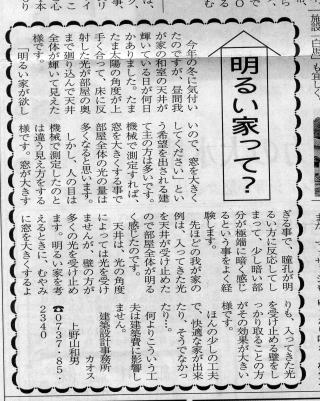 明るい家って?
今年の冬に気付い
たのですが、昼間我
が家の和室の天井が
輝いている日が何日
かありました。たま
たま太陽の角度が上
手く合って、床に反
射した光が部屋の奥
まで割り込んで天井
全体が輝いて見えた
様です。
「明るい家が欲し
いので、窓を大きく
してください」とい
う希望を出される建
て主の方は多いです。
機械で測定すれば、
窓を大きくする事で
部屋全体の光の量は
多くなると思います。
しかし、人の目は
機械で測定したのと
は違う見え方をする
様です。窓が大きす
ぎる事で、瞳孔が明
るい方に反応してし
まって、少し暗い部
分が極端に暗く感じ
るという事をよく経
験します。
先ほどの我が家の
例は、入ってきた光
を天井が受け止めた
ので部屋全体が明る
く感じたのです。
天井は、光の角度
によっては光を受け
ませんが、壁の方が
多くの光を受け止め
ます。明るい家を考
えるときに、むやみ
に窓を大きくするよ
りも、入ってきた光
を受け止める壁をし
っかり取ることの方
がその効果が大きい
様です。
ほんの少しの工夫
で、快適な家が出来
たり、そうでなかっ
たり…。
何よりこういう工
夫は建築費に影響し
ません。
建築設計事務所
カオス
上野山和男
☎0737・85・
2340